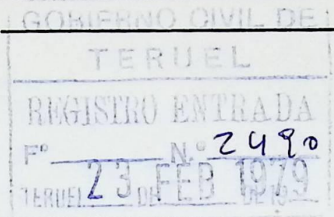 GOBIERNO CIVIL DE
TERUEL
REGISTRO ENTRADA
Fº N.º 2490
TERUEL 23 DE FEB 1979